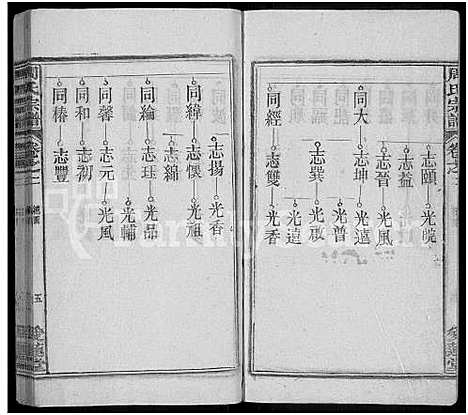 周氏宗譜
志頤 光皖
志益
志晉 光風
同大 志坤 光普
志巽 光啟
同經 志雙 光遠
愛蓮堂
志揚 光香
同緯 志懷 光祖
志綿
同綸 志珏 光品
同馨 志元 光輔
同和 志初 光風
同椿 志豐
周氏宗譜
五
愛蓮堂